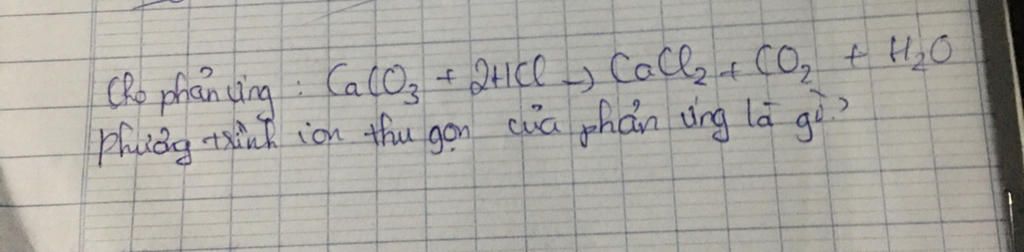 Cho phản ứng : CaCO₃ + 2HCl → CaCl₂ + CO₂ + H₂O
Phương trình ion thu gọn của phản ứng là gì?